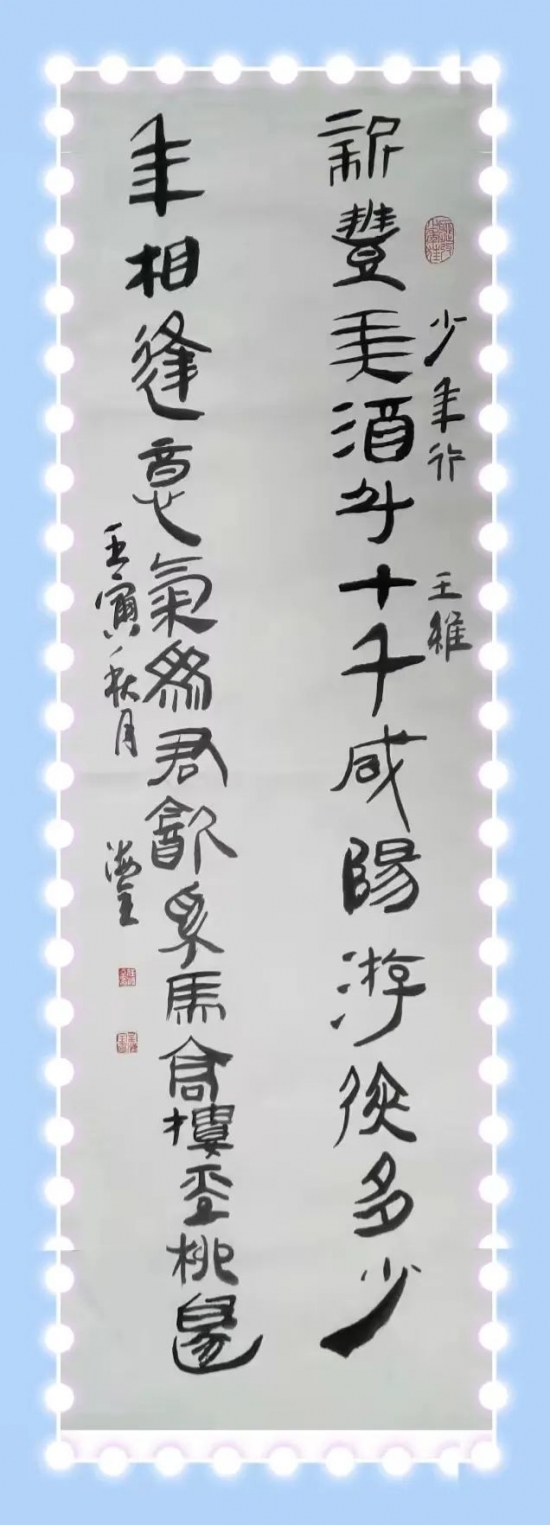 少年行 王維
新豐美酒斗十千咸陽游俠多少
年相逢意氣為君飲系馬高樓垂柳邊
壬寅秋月 海